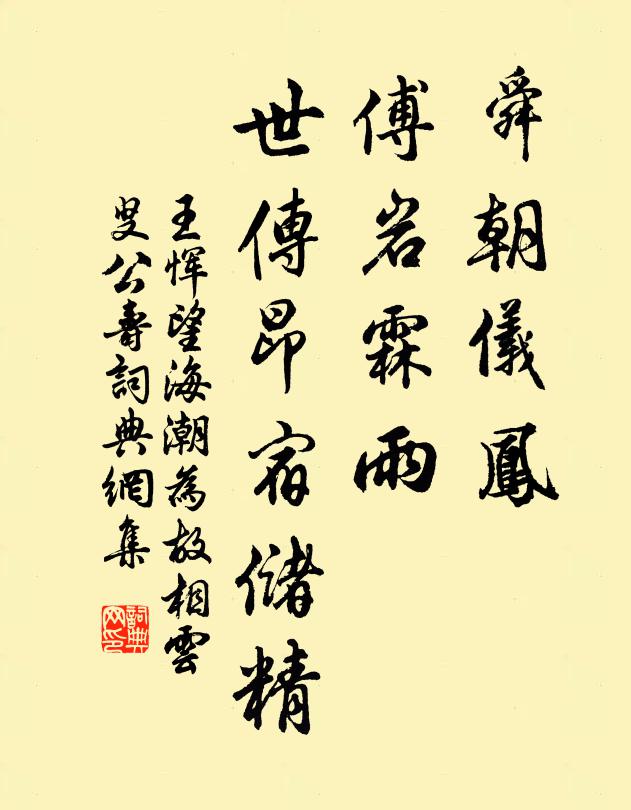 舜朝儀鳳
傅岩霖雨
世傳昂宿儲精
王惲望海潮為故相雲
叟公壽詞典網集
詞典網印